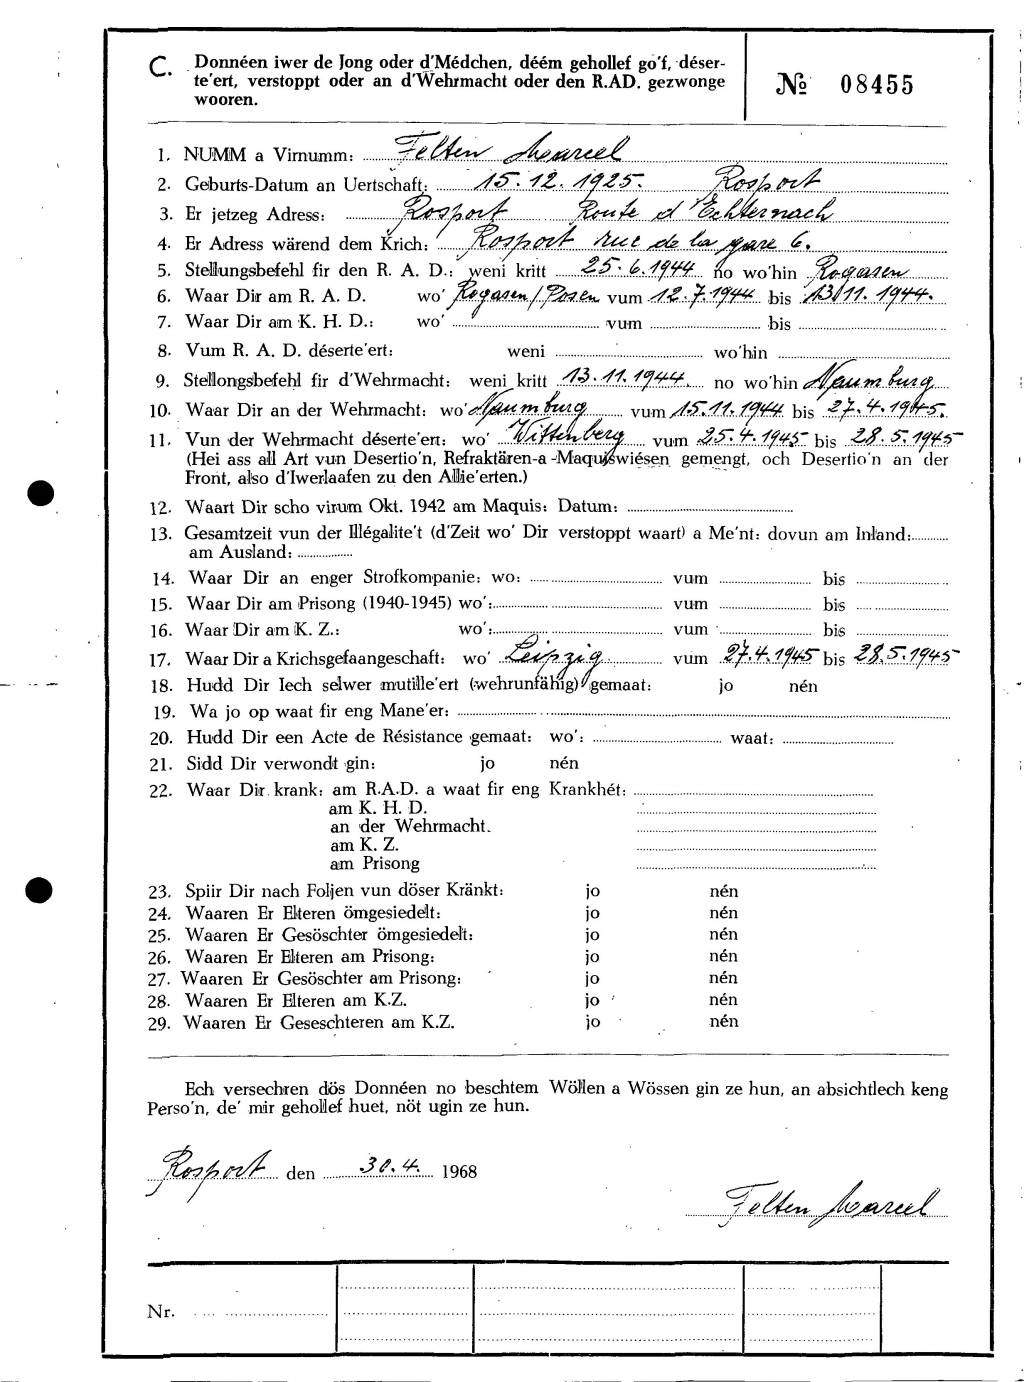 C. Donnéen iwer de Jong oder d'Médchen, déém gehollef go'f, déser-
te'ert, verstoppt oder an d'Wehrmacht oder den R.AD. gezwonge
wooren.
№ 08455
1. NUMM a Virnumm: Felten Marcel
2. Geburts-Datum an Uertschaft: 15.12.1925. Rosport
3. Er jetzeg Adress: Rosport Route d'Echternach
4. Er Adress wärend dem Krich: Rosport rue de la gare 6.
5. Stellungsbefehl fir den R. A. D.: weni kritt 25.6.1944 no wo'hin Rogasen
6. Waar Dir am R. A. D. wo' Rogasen/Posen vum 12.7.1944 bis 13.11.1944.
7. Waar Dir am K. H. D.: wo' vum bis
8. Vum R. A. D. déserte'ert: weni wo'hin
9. Stellongsbefehl fir d'Wehrmacht: weni kritt 13.11.1944. no wo'hin Naumburg
10. Waar Dir an der Wehrmacht: wo' Naumburg vum 15.11.1944 bis 27.4.1945.
11. Vun der Wehrmacht déserte'ert: wo' Wittenberg vum 25.4.1945 bis 28.5.1945
(Hei ass all Art vun Desertio'n, Refraktären-a-Maquiswiésen gemengt, och Desertio'n an der
Front, also d'Iwerlaafen zu den Allie'erten.)
12. Waart Dir scho virum Okt. 1942 am Maquis: Datum:
13. Gesamtzeit vun der Illégalite't (d'Zeit wo' Dir verstoppt waart) a Me'nt: dovun am Inland:
am Ausland:
14. Waar Dir an enger Strofkompanie: wo: vum bis
15. Waar Dir am Prisong (1940-1945) wo': vum bis
16. Waar Dir am K. Z.: wo': vum bis
17. Waar Dir a Krichsgefaangeschaft: wo' Leipzig vum 27.4.1945 bis 28.5.1945
18. Hudd Dir Iech selwer mutille'ert (wehrunfähig) gemaat: jo nén
19. Wa jo op waat fir eng Mane'er:
20. Hudd Dir een Acte de Résistance gemaat: wo': waat:
21. Sidd Dir verwondt gin: jo nén
22. Waar Dir krank: am R.A.D. a waat fir eng Krankhét:
am K. H. D.
an der Wehrmacht.
am K. Z.
am Prisong
23. Spiir Dir nach Foljen vun döser Kränkt: jo nén
24. Waaren Er Elteren ömgesiedelt: jo nén
25. Waaren Er Gesöschter ömgesiedelt: jo nén
26. Waaren Er Elteren am Prisong: jo nén
27. Waaren Er Gesöschter am Prisong: jo nén
28. Waaren Er Elteren am K.Z. jo nén
29. Waaren Er Geseschteren am K.Z. jo nén
Ech versechren dös Donnéen no beschtem Wöllen a Wössen gin ze hun, an absichtlech keng
Perso'n, de' mir gehollef huet, nöt ugin ze hun.
Rosport den 30.4. 1968
Felten Marcel
Nr.